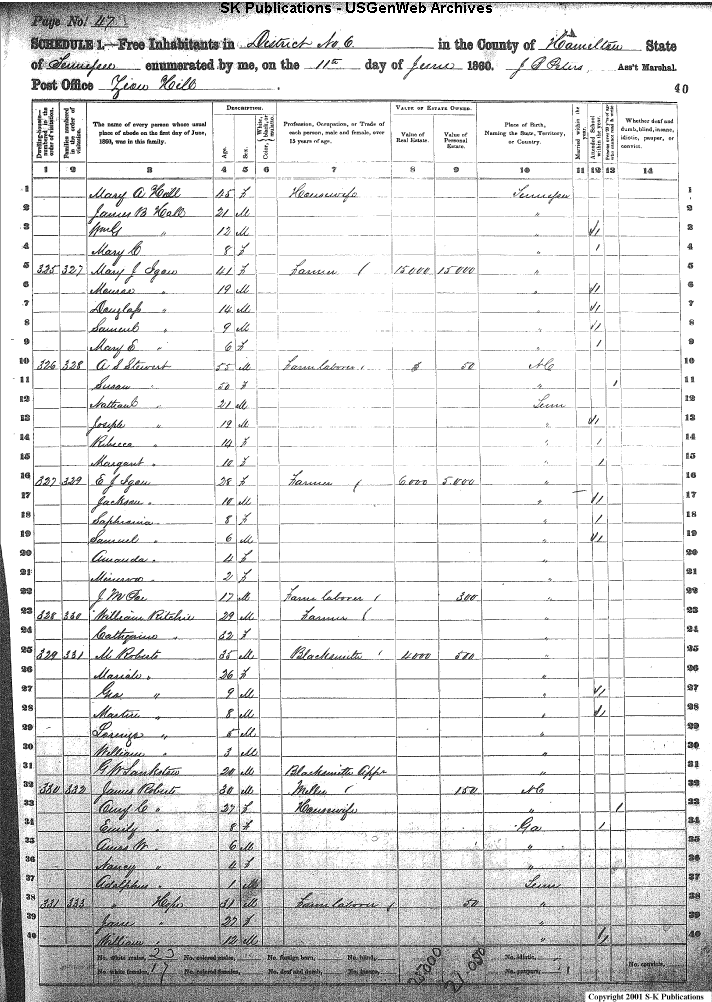 SK Publications - USGenWeb Archives
Page No. 47
SCHEDULE 1.—Free Inhabitants in District No 6 in the County of Hamilton State
of Tennessee enumerated by me, on the 11th day of June 1860. J P Peters, Ass't Marshal.
Post Office Zion Hill . 40
Dwelling-houses— numbered in the order of visitation.
Families numbered in the order of visitation.
The name of every person whose usual place of abode on the first day of June, 1860, was in this family.
DESCRIPTION.
Age.
Sex.
Color, White, black, or mulatto.
Profession, Occupation, or Trade of each person, male and female, over 15 years of age.
VALUE OF ESTATE OWNED.
Value of Real Estate.
Value of Personal Estate.
Place of Birth, Naming the State, Territory, or Country.
Married within the year.
Attended School within the year.
Persons over 20 y'rs of age who cannot read & write.
Whether deaf and dumb, blind, insane, idiotic, pauper, or convict.
1 2 3 4 5 6 7 8 9 10 11 12 13 14
1 Mary A Hall 45 F Housewife Tennessee 1
2 James B Hall 21 M " 2
3 WmG " 12 M " 1 3
4 Mary C 8 F " 1 4
5 325 327 Mary J Igou 41 F Farmer 15000 15000 " 5
6 Monroe " 19 M " 1 6
7 Douglass " 14 M " 1 7
8 Samuel " 9 M " 1 8
9 Mary E " 6 F " 1 9
10 326 328 A S Stewert 55 M Farm laborer 50 NC 10
11 Susan " 50 F " 1 11
12 Nathan 21 M Tenn 12
13 Joseph " 19 M " 1 13
14 Ribecca " 14 F " 1 14
15 Margaret " 10 F " 1 15
16 327 329 E J Igou 28 F Farmer 6000 5.000 " 16
17 Jackson " 10 M " 1 17
18 Saphronia " 8 F " 1 18
19 Samuel " 6 M " 1 19
20 Amanda " 4 F " 20
21 Minerva " 2 F " 21
22 J M 17 M Farm laborer 300 " 22
23 328 330 William Ritchie 29 M Farmer " 23
24 Catharine " 32 F " 24
25 329 331 M Roberts 35 M Blacksmith 4000 500 " 25
26 " 26 F " 26
27 Geo " 9 M " 1 27
28 " 8 M " 1 28
29 Lorenzo " 5 M " 29
30 William " 3 M " 30
31 G W Lankston 20 M Blacksmith Appr " 31
32 330 332 James Roberts 30 M Miller 150 NC 32
33 C " 27 F Housewife " 1 33
34 Emily " 8 F Ga 1 34
35 W " 6 M " 35
36 Nancy " 4 F " 36
37 Adolphus " 1 M Tenn 37
38 331 333 " 31 M Farm laborer 50 " 38
39 Jane " 27 F " 39
40 William " 12 M " 1 40
No. white males, 23 No. colored males, No. foreign born, No. blind, No. idiotic, No. convicts,
No. white females, 17 No. colored females, No. deaf and dumb, No. insane, 25000 21.050 No. paupers,
Copyright 2001 S-K Publications